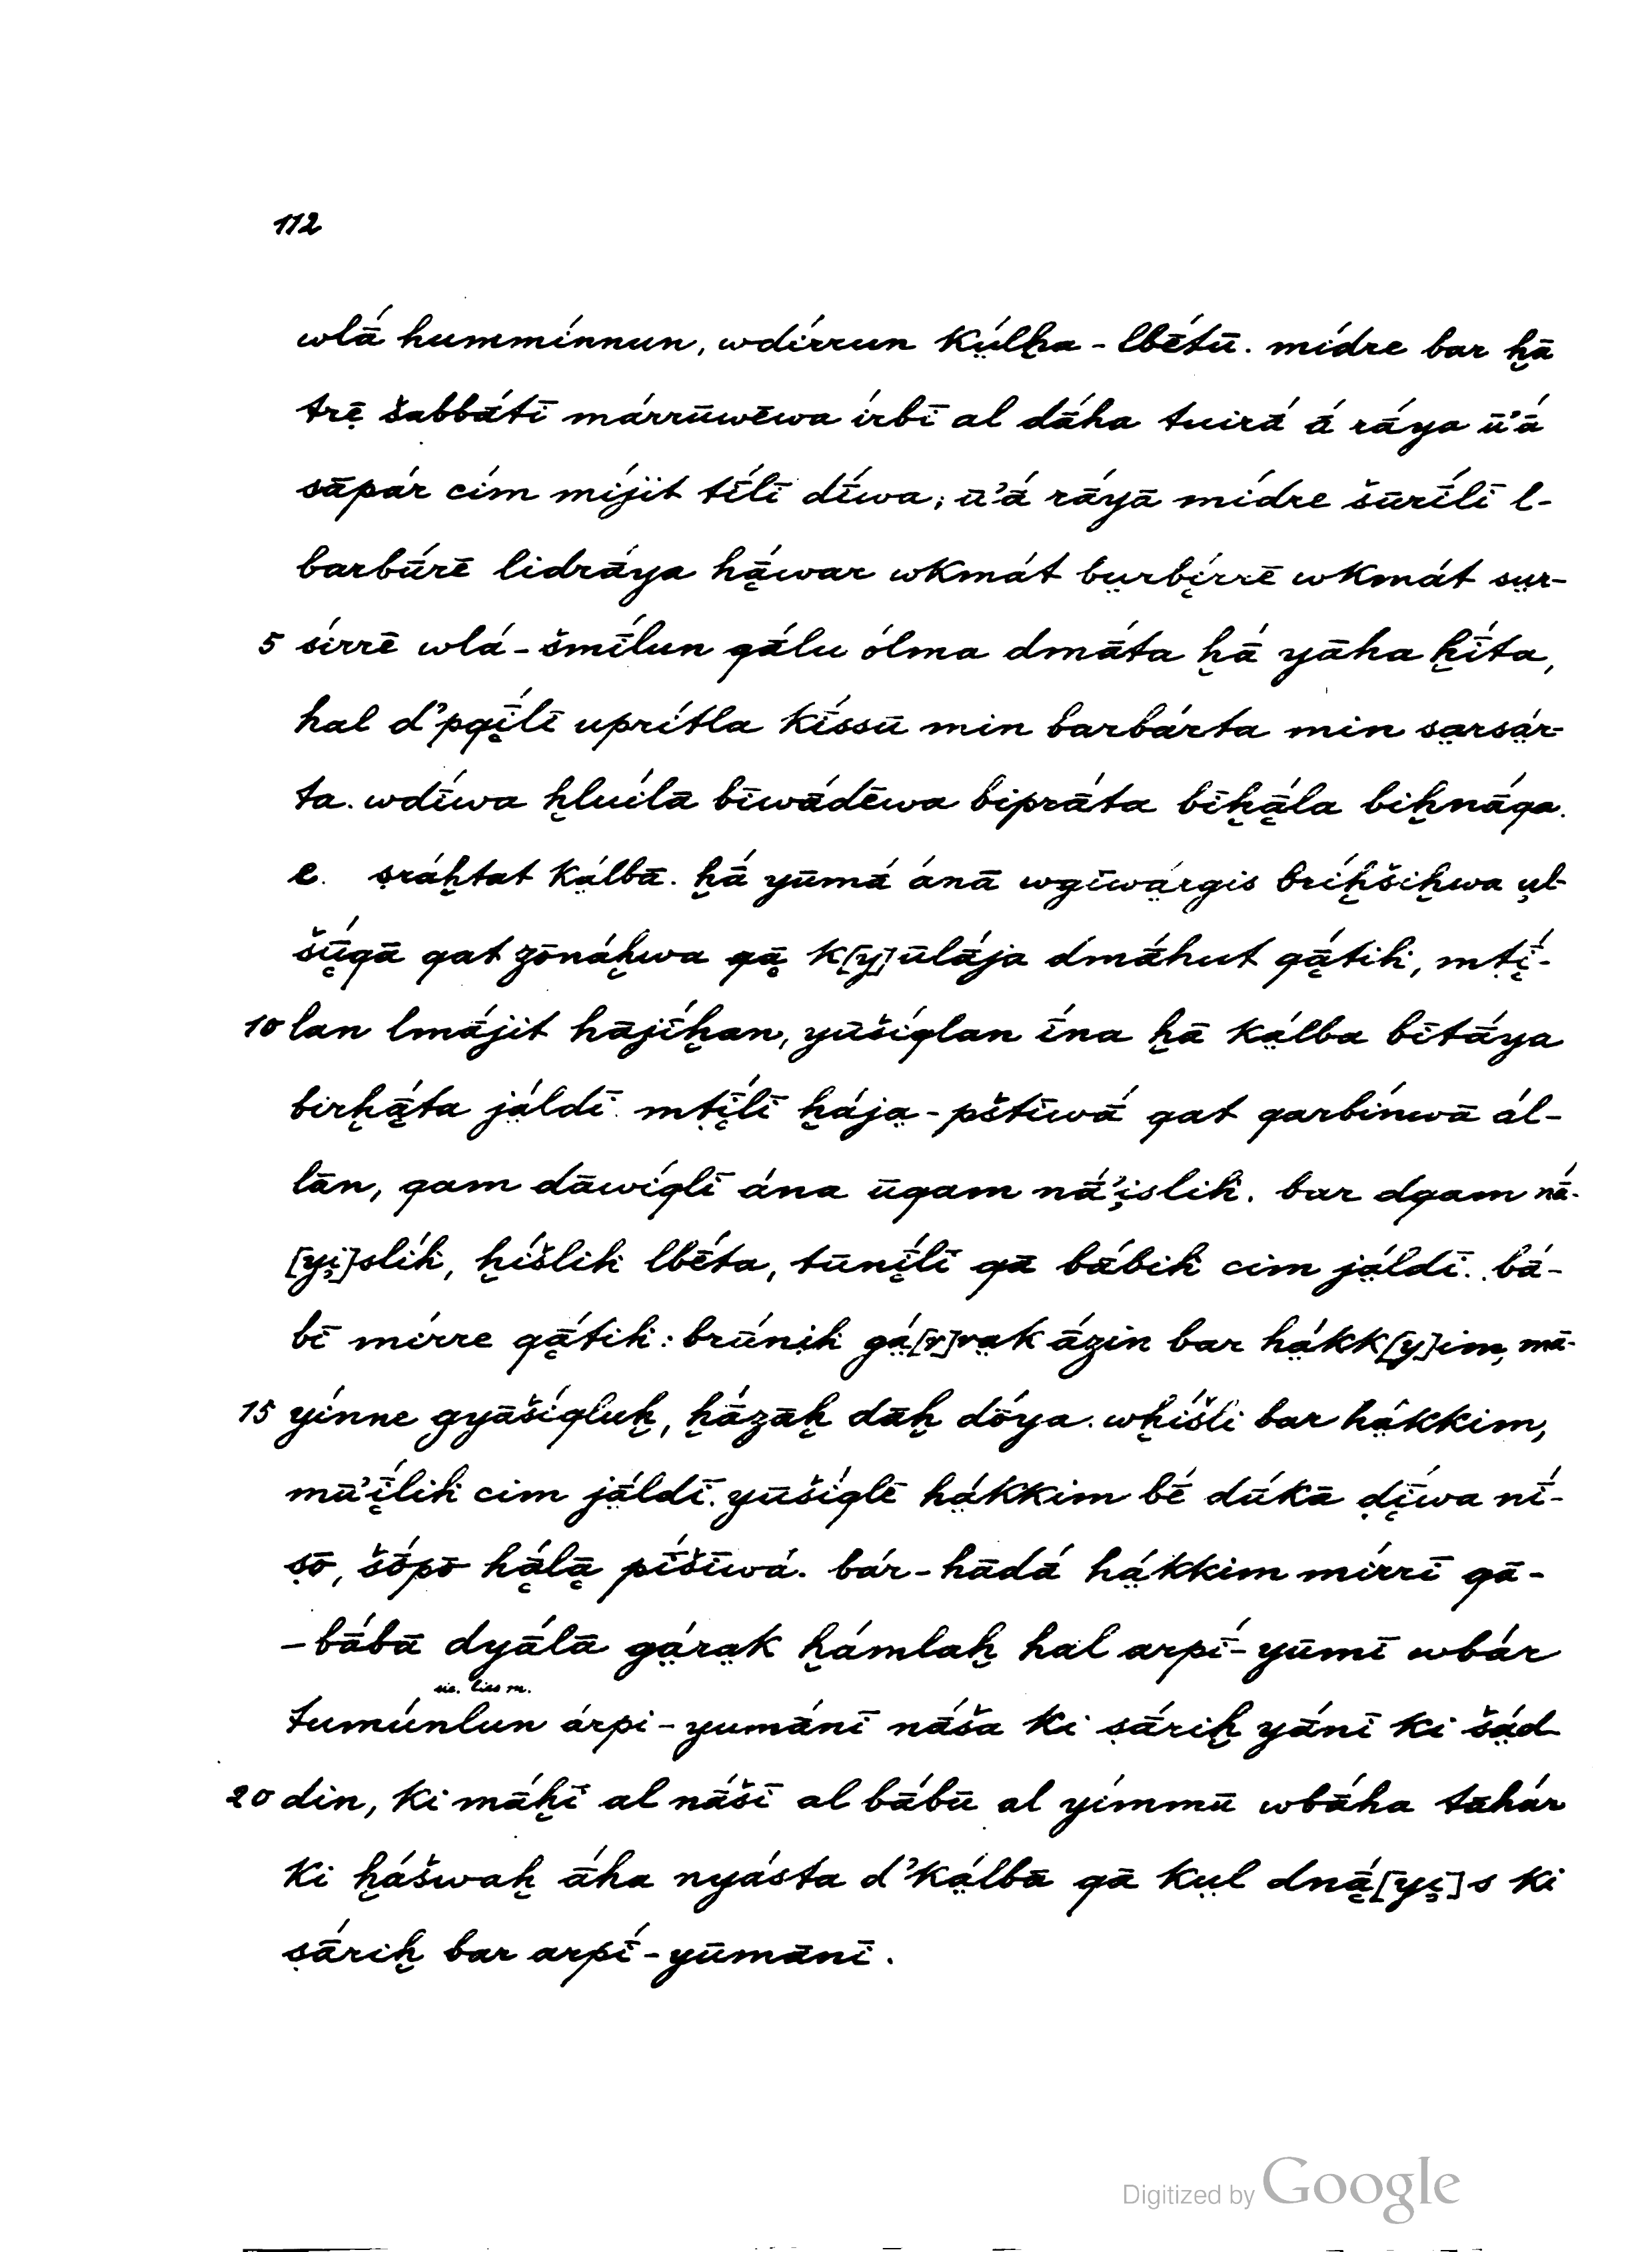 112
wlā́ hummínnun, wdírrun kṳ́lḫa-lbḗtū. mídre bar ḫā
trē šabbā́tī márrūwēwa írbī al dā́ha tuirā́ ā́ rā́ya ū'ā́
sāpár cím míjit tī́lī dī́wa; ū'ā́ rā́yā mídre šūrī́lī l-
barbū́rē lidrā́ya hā̮́war wkmát bṳrbí̮rrē wkmát sṳr-
5 sírrē wlá-šmī́lun qā́lu ólma dmā́ta ḫā́ yāha ḫī́ta,
hal d'pqī̮́lī uprítla kī́ssū min barbárta min sa̤rsá̤r-
ta. wdī́wa ḫluílā bīwā́dēwa biprā́ta bīḫā̮́la biḫnā́qa.
e. ṣráḫtat ká̤lbā. ḫā́ yūmā́ ánā wgīwá̤rgis bríḫšiḫwa ṷl-
šū̮́qā qat zōnáḫwa qā̮ k[y]ūlā́ja dmā́hut qā̮́tiḣ, mṭī̮́-
10 lan lmā́jit hājī́ḫan, yūšíqlan ī́na ḫā ká̤lba bītā́ya
birḫā̮́ta já̤ldī. mṭī̮́lī ḫája̤-pštīwā́ qat qarbínwā ál-
lān, qam dāwíqlī ána ūqam nā́'i̮sliḣ. bar dqam nā́-
[yi̮]slíḣ, ḫíšliḣ lbḗta, tūnī̮́lī qā bā́biḣ cim já̤ldī. bā́-
bī mírre qā̮́tiḣ: brū́niḣ gá̤[r]ra̤k ā́zin bar há̤kk[y]im, mā-
15 yínne gyāšíqluḫ, ḫā́zāḫ dāḫ dṓya. wḫíšli bar há̤kkim,
mū'ī̮́liḣ cim já̤ldī. yūšíqlē há̤kkim bē dū́kā ḍī̮́wa nī́-
ṣō, šṓpō hā̮́lā̮ pī́šīwá. bár-hādā́ há̤kkim mírrī qā-
-bā́bā dyā́lā gá̤ra̤k ḫámlaḫ hal arpī́-yūmī wbár
sic. lies m.
tumúnlun árpi-yumā́nī nā́ša ki ṣā́riḫ yā́nī ki šá̤d
20 din, ki mā́ḫī al nā́šī al bā́bū al yímmū wbā́ha tahár
ki ḫášwaḫ ā́ha nyásta d'ká̤lbā qā kṳl dnā̮́[yi̮]s ki
ṣā́riḫ bar arpī́-yūmānī.
Digitized by Google